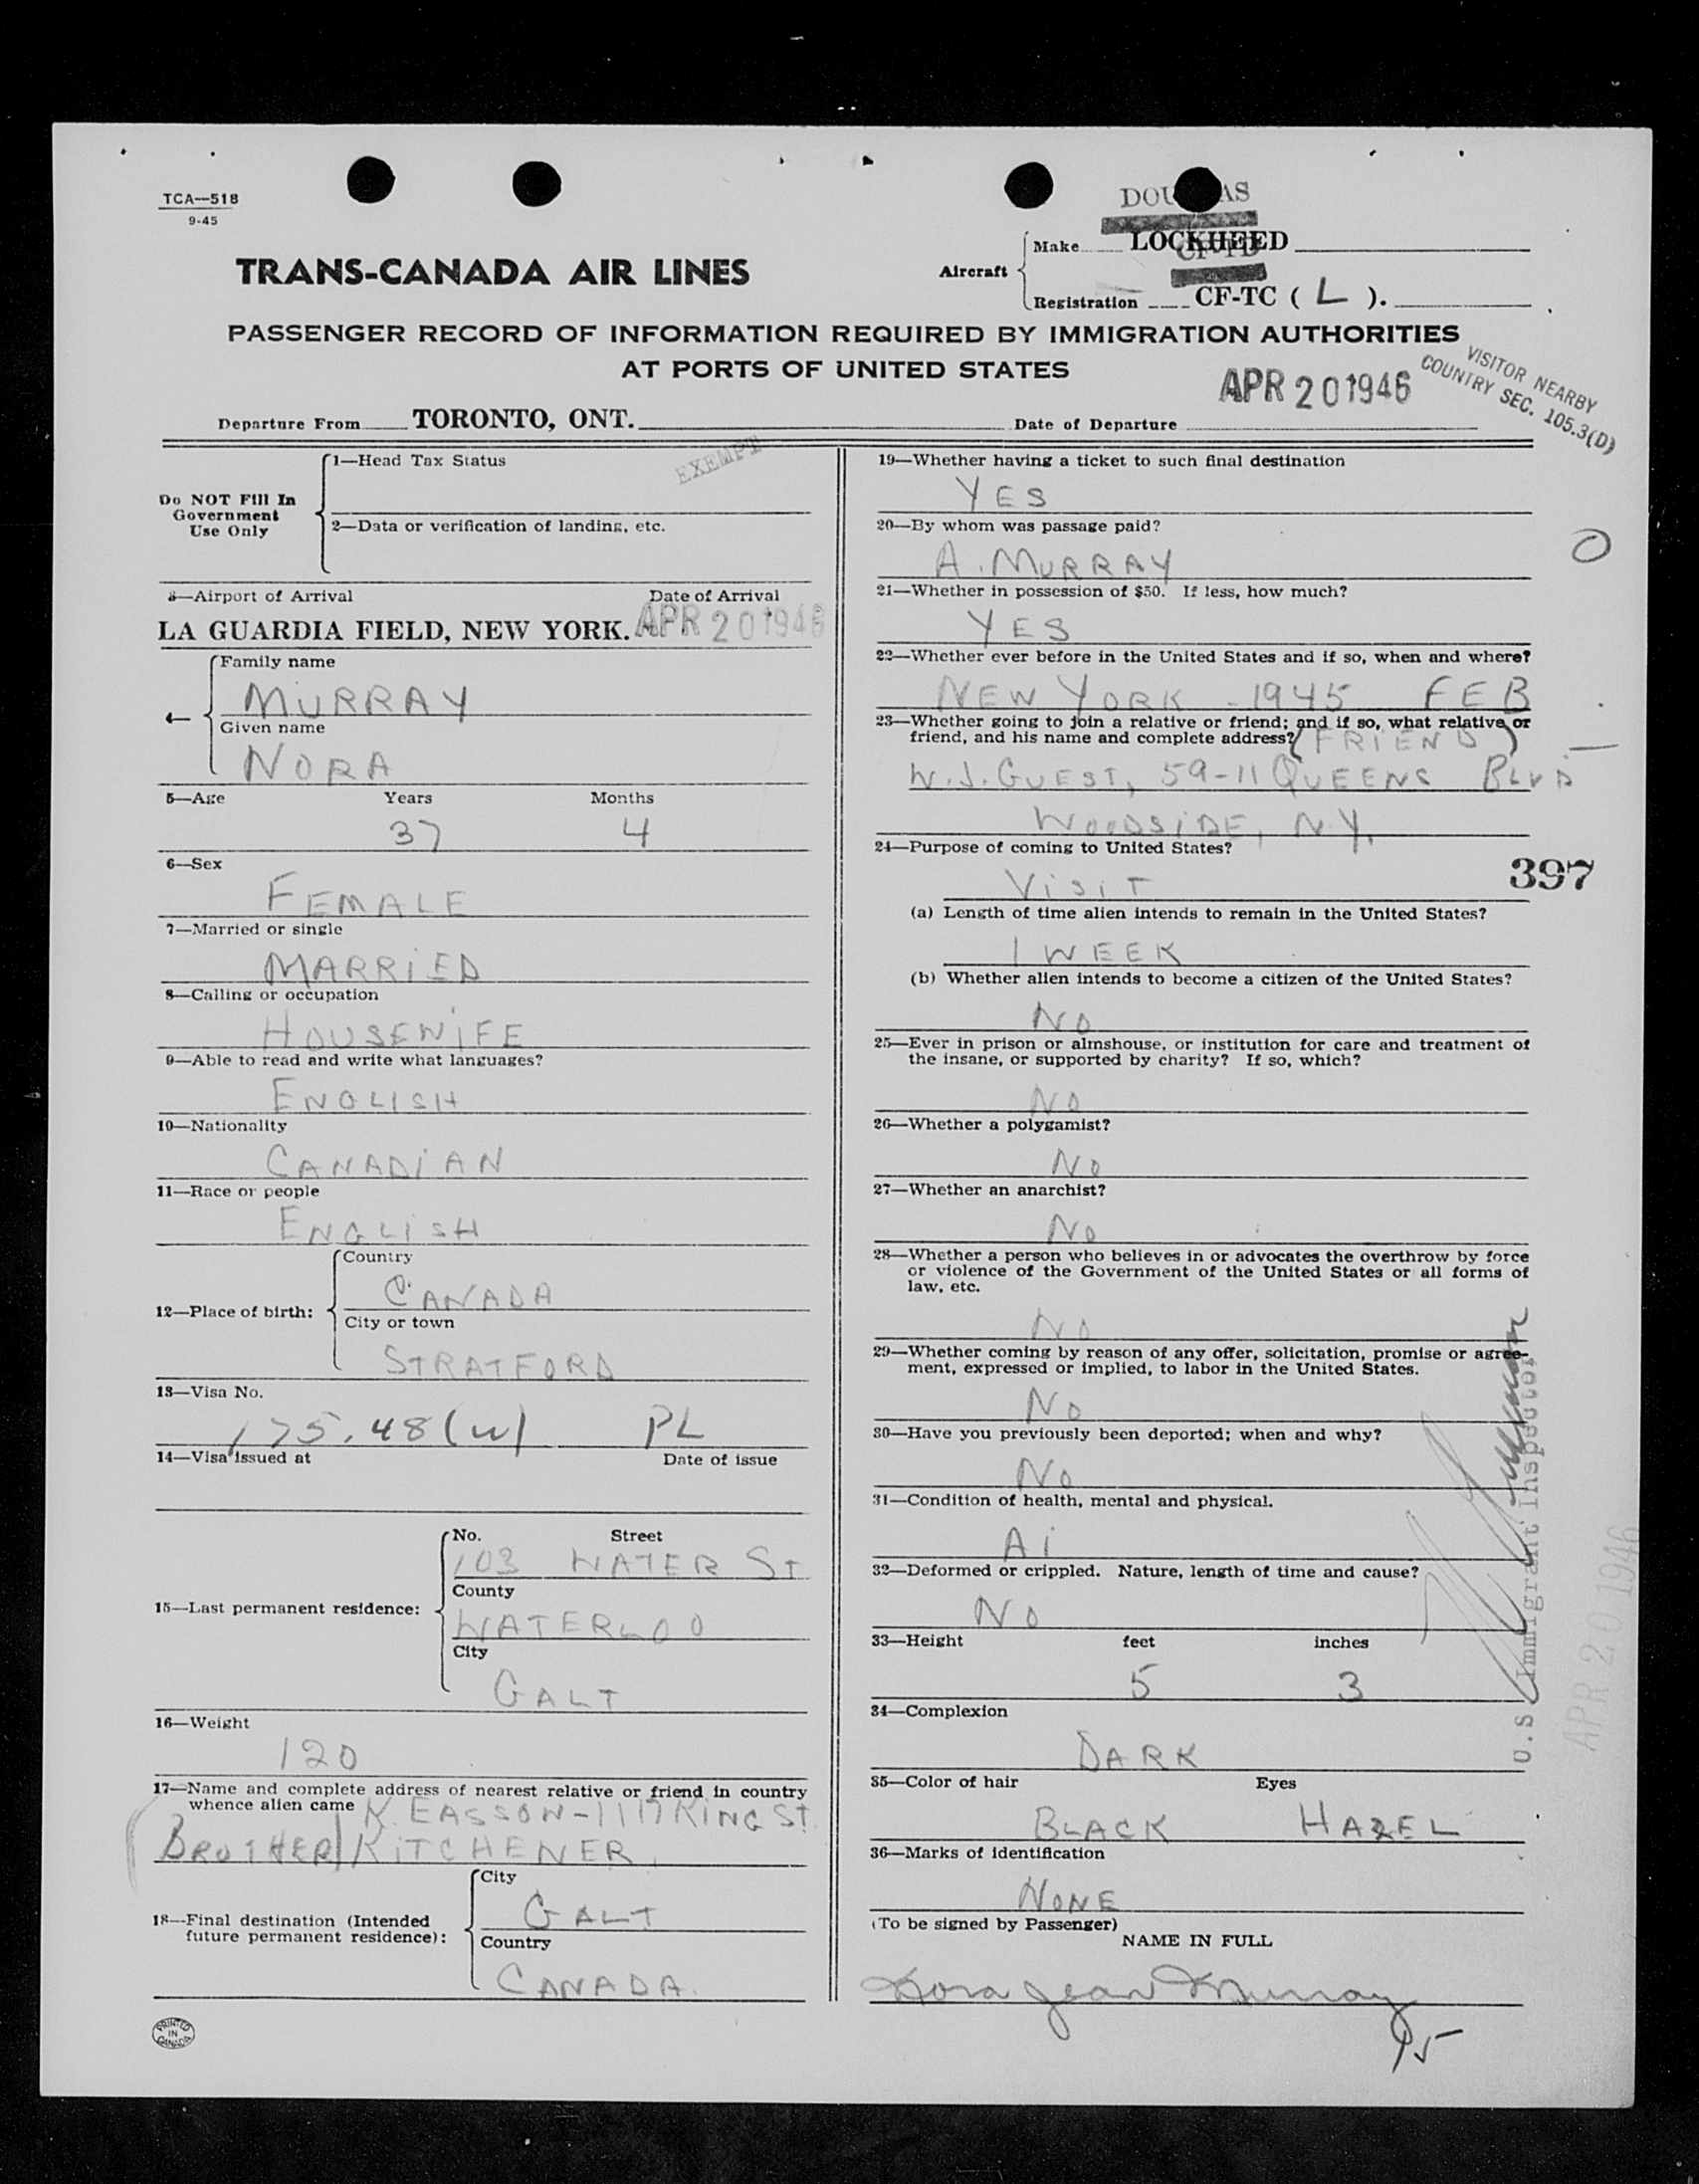 TCA—518
9-45
DOUGLAS
Make LOCKHEED
CF-TD
Aircraft
Registration CF-TC ( L ).
TRANS-CANADA AIR LINES
PASSENGER RECORD OF INFORMATION REQUIRED BY IMMIGRATION AUTHORITIES
AT PORTS OF UNITED STATES
VISITOR NEARBY
COUNTRY SEC. 105.3(D)
APR 20 1946
Departure From TORONTO, ONT.
Date of Departure
Do NOT Fill In
Government
Use Only
1—Head Tax Status
EXEMPT
2—Data or verification of landing, etc.
3—Airport of Arrival Date of Arrival
LA GUARDIA FIELD, NEW YORK. APR 20 1946
4— Family name
MURRAY
Given name
NORA
5—Age Years Months
37 4
6—Sex
FEMALE
7—Married or single
MARRIED
8—Calling or occupation
HOUSEWIFE
9—Able to read and write what languages?
ENGLISH
10—Nationality
CANADIAN
11—Race or people
ENGLISH
12—Place of birth:
Country
CANADA
City or town
STRATFORD
13—Visa No.
175.48(w) PL
14—Visa issued at Date of issue
15—Last permanent residence:
No. Street
103 WATER ST
County
WATERLOO
City
GALT
16—Weight
120
17—Name and complete address of nearest relative or friend in country
whence alien came K. EASSON - 1117 KING ST.
(BROTHER) KITCHENER,
18—Final destination (Intended
future permanent residence):
City
GALT
Country
CANADA.
PRINTED
IN
CANADA
19—Whether having a ticket to such final destination
YES
20—By whom was passage paid?
A. MURRAY
21—Whether in possession of $50. If less, how much?
YES
22—Whether ever before in the United States and if so, when and where?
NEW YORK - 1945 FEB
23—Whether going to join a relative or friend; and if so, what relative or
friend, and his name and complete address? (FRIEND)
W.J. GUEST, 59-11 QUEENS BLVD
WOODSIDE, N.Y.
24—Purpose of coming to United States?
397
VISIT
(a) Length of time alien intends to remain in the United States?
1 WEEK
(b) Whether alien intends to become a citizen of the United States?
NO
25—Ever in prison or almshouse, or institution for care and treatment of
the insane, or supported by charity? If so, which?
NO
26—Whether a polygamist?
NO
27—Whether an anarchist?
NO
28—Whether a person who believes in or advocates the overthrow by force
or violence of the Government of the United States or all forms of
law, etc.
NO
29—Whether coming by reason of any offer, solicitation, promise or agree-
ment, expressed or implied, to labor in the United States.
NO
30—Have you previously been deported; when and why?
NO
31—Condition of health, mental and physical.
A1
32—Deformed or crippled. Nature, length of time and cause?
NO
33—Height feet inches
5 3
34—Complexion
DARK
35—Color of hair Eyes
BLACK HAZEL
36—Marks of identification
NONE
(To be signed by Passenger)
NAME IN FULL
Nora Jean Murray
15
U.S. Immigrant Inspector
APR 20 1946
0